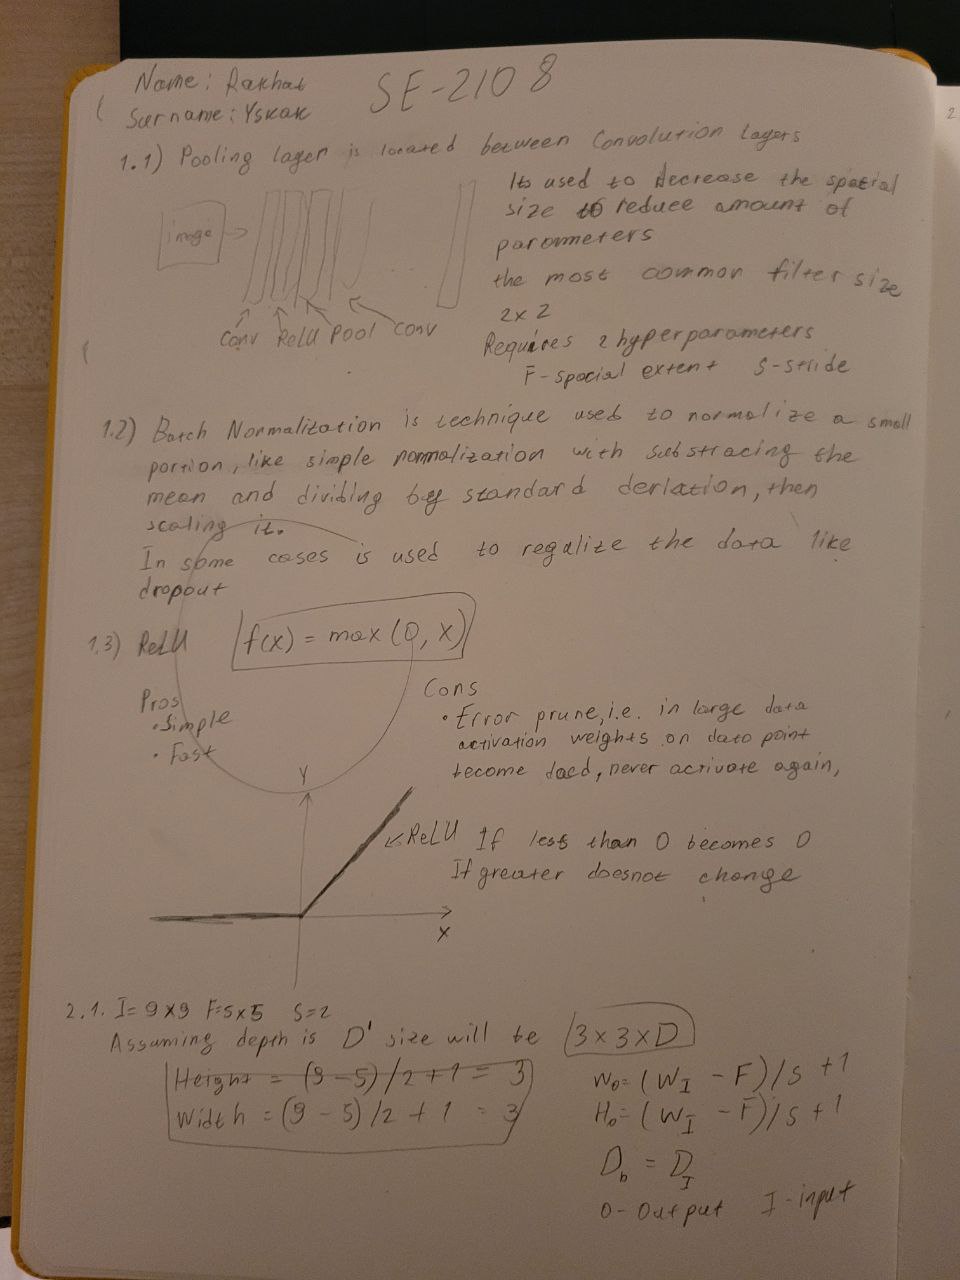 Name: Rakhat
Surname: Yskak
SE-2108
1.1) Pooling layer is located between Convolution Layers
image
Conv ReLU Pool Conv
Its used to decrease the spatial
size to reduce amount of
parometers
the most common filter size
2x2
Requires 2 hyperparameters
F-spacial extent S-stride
1.2) Batch Normalization is technique used to normalize a small
portion, like simple normalization with substracing the
mean and dividing by standard derlation, then
scaling it.
In some cases is used to regalize the data like
dropout
1.3) ReLU f(x) = max(0, x)
Pros
• Simple
• Fast
Cons
• Error prune, i.e. in large data
activation weights on dato point
become daed, never activate again,
Y
ReLU
X
If less than 0 becomes 0
If greater doesnot change
2.1. I=9x9 F=5x5 S=2
Assuming depth is D' size will be 3x3xD
Height = (9-5)/2+1 = 3
Width = (9-5)/2+1 = 3
Wo=(WI - F)/S +1
Ho=(WI - F)/S +1
Do = DI
O-Output I-input
2